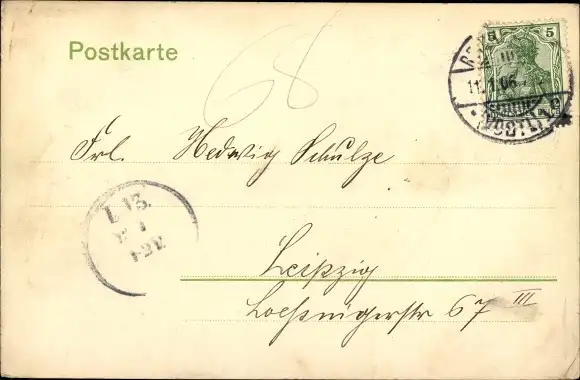 68
Postkarte
5 5
11.1.06
Frl. Hedwig Schulze
L 13.
Leipzig
Loessnigerstr 67 III